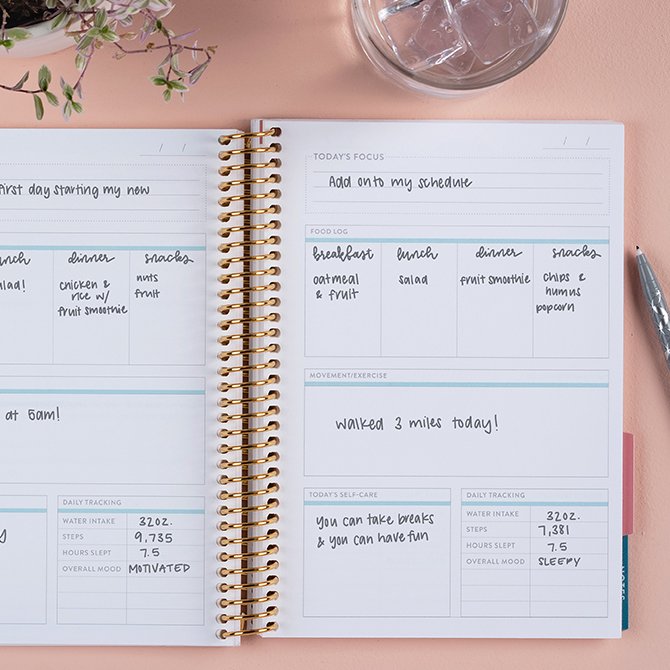 / /
First day starting my new
unch
dinner
snacks
alad!
chicken &
rice w/
fruit smoothie
nuts
fruit
at 5am!
DAILY TRACKING
WATER INTAKE 32OZ.
STEPS 9,735
HOURS SLEPT 7.5
OVERALL MOOD MOTIVATED
/ /
TODAY'S FOCUS
Add onto my schedule
FOOD LOG
breakfast
lunch
dinner
snacks
oatmeal
& fruit
salad
fruit smoothie
chips &
humus
popcorn
MOVEMENT/EXERCISE
walked 3 miles today!
TODAY'S SELF-CARE
you can take breaks
& you can have fun
DAILY TRACKING
WATER INTAKE 32OZ.
STEPS 7,381
HOURS SLEPT 7.5
OVERALL MOOD SLEEPY
NOTES